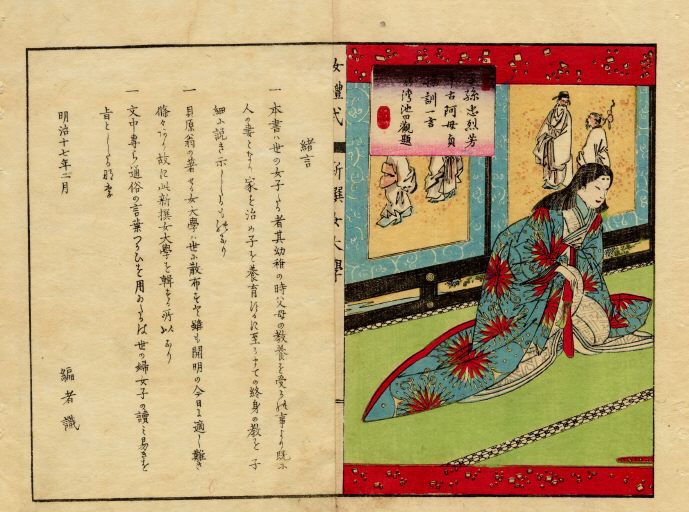 孫忠烈芳
古阿母貞
訓一言
灣池田觀題
女禮式
新撰女大學
緒言
一 本書ハ世の女子たる者其幼稚の時父母の教養を受るの事より既に
人の妻となり家を治め子を養育するに至るまでの終身の教を子
細に説き示したるものなり
一 貝原翁の著せる女大學ハ世に散布すと雖も開明の今日に適し難き
條々あり故に此新撰女大學を輯する所以なり
一 文中専ら通俗の言葉つかひを用ゐしハ世の婦女子の讀み易きを
旨としたる耳
明治十七年二月
編者識